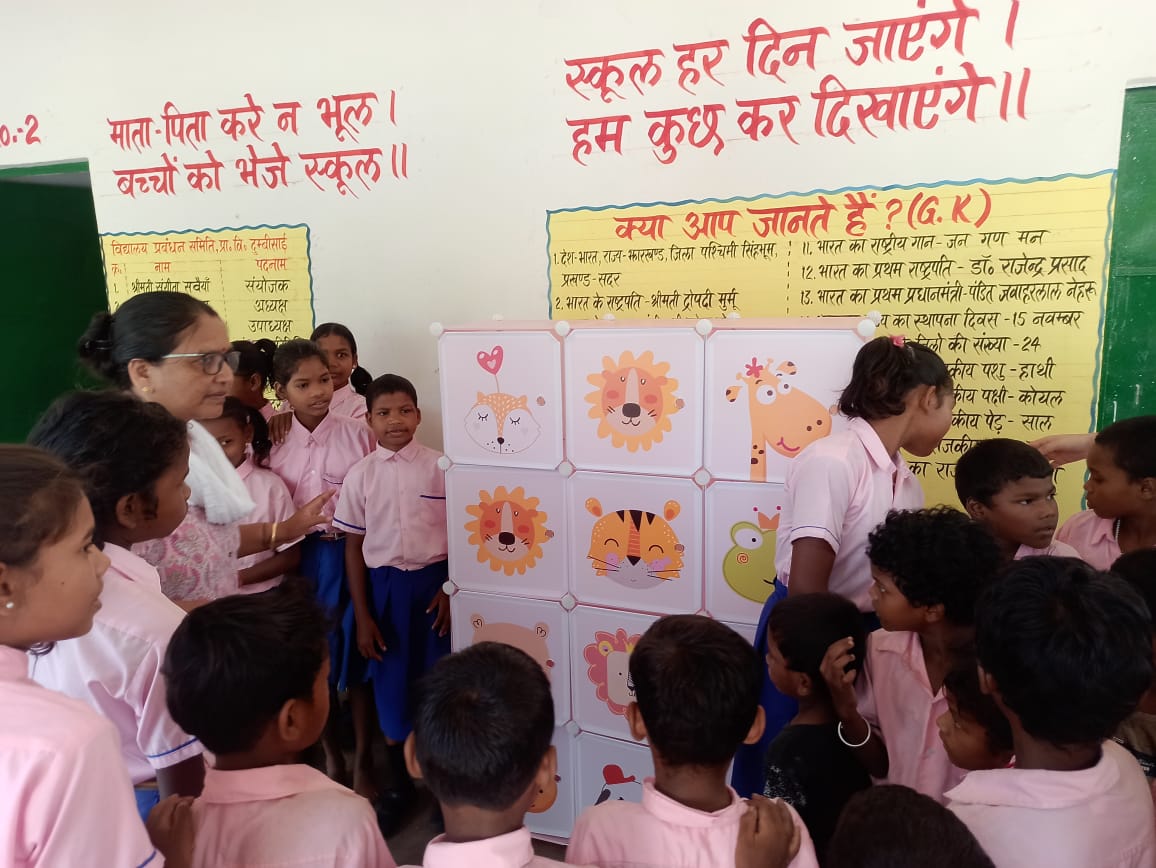 0.-2
माता-पिता करे न भूल ।
बच्चों को भेजे स्कूल ॥
स्कूल हर दिन जाएंगे ।
हम कुछ कर दिखाएंगे ॥
विद्यालय प्रबंधन समिति, प्रा. वि. दुम्बीसाई
क्र. नाम पदनाम
1. श्रीमती संगीता सवैयाँ संयोजक
अध्यक्ष
उपाध्यक्ष
क्या आप जानते हैं ? (G.K)
1. देश-भारत, राज्य-झारखण्ड, जिला पश्चिमी सिंहभूम,
प्रखण्ड-सदर
2. भारत के राष्ट्रपति-श्रीमती द्रोपदी मुर्मू
11. भारत का राष्ट्रीय गान-जन गण मन
12. भारत का प्रथम राष्ट्रपति - डॉ० राजेन्द्र प्रसाद
13. भारत का प्रथम प्रधानमंत्री-पंडित जवाहरलाल नेहरू
का स्थापना दिवस -15 नवम्बर
की संख्या -24
कीय पशु - हाथी
कीय पक्षी - कोयल
कीय पेड़ - साल
राजकी
का रा